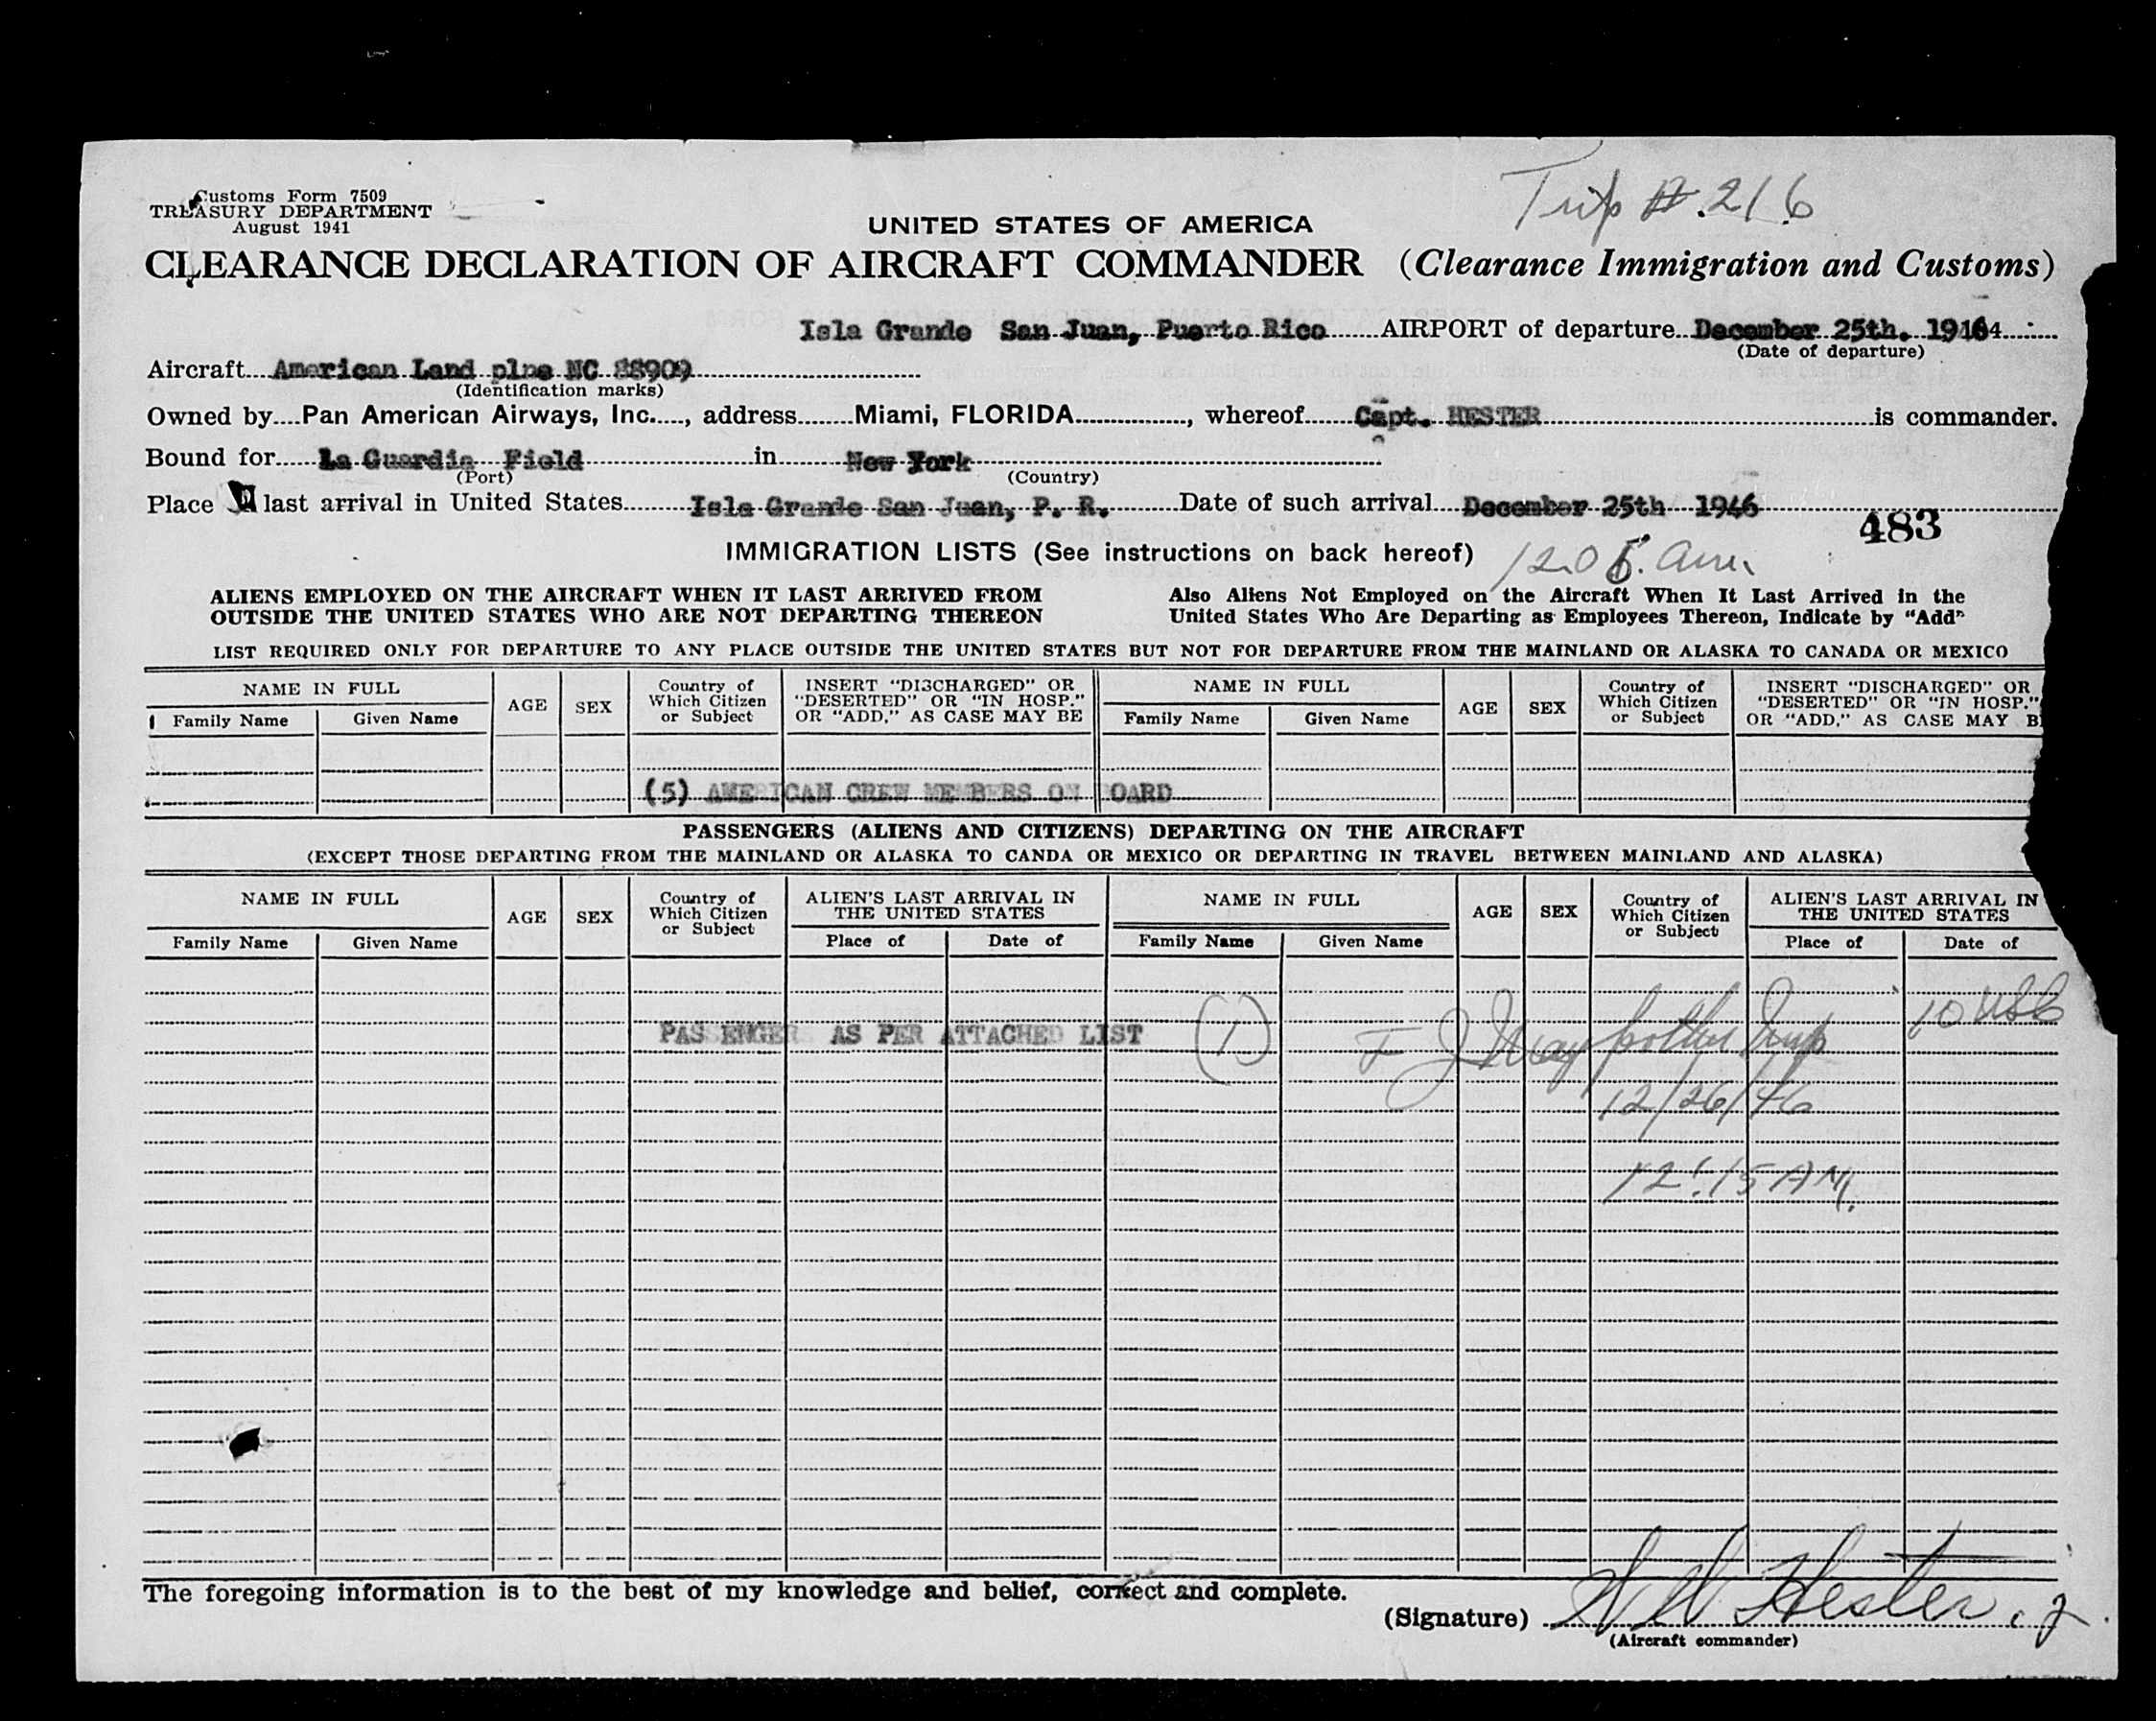 Customs Form 7509
TREASURY DEPARTMENT
August 1941
Trip #.216
UNITED STATES OF AMERICA
CLEARANCE DECLARATION OF AIRCRAFT COMMANDER (Clearance Immigration and Customs)
Isla Grande San Juan, Puerto Rico AIRPORT of departure December 25th. 19464
(Date of departure)
Aircraft American Land plne NC 88909
(Identification marks)
Owned by Pan American Airways, Inc., address Miami, FLORIDA, whereof Capt. HESTER is commander.
Bound for La Guardia Field in New York
(Port) (Country)
Place last arrival in United States Isla Grande San Juan, P. R. Date of such arrival December 25th 1946
483
IMMIGRATION LISTS (See instructions on back hereof) 1205. am.
ALIENS EMPLOYED ON THE AIRCRAFT WHEN IT LAST ARRIVED FROM OUTSIDE THE UNITED STATES WHO ARE NOT DEPARTING THEREON
Also Aliens Not Employed on the Aircraft When It Last Arrived in the United States Who Are Departing as Employees Thereon, Indicate by "Add"
LIST REQUIRED ONLY FOR DEPARTURE TO ANY PLACE OUTSIDE THE UNITED STATES BUT NOT FOR DEPARTURE FROM THE MAINLAND OR ALASKA TO CANADA OR MEXICO
NAME IN FULL
Family Name Given Name
AGE
SEX
Country of Which Citizen or Subject
INSERT "DISCHARGED" OR "DESERTED" OR "IN HOSP." OR "ADD," AS CASE MAY BE
NAME IN FULL
Family Name Given Name
AGE
SEX
Country of Which Citizen or Subject
INSERT "DISCHARGED" OR "DESERTED" OR "IN HOSP." OR "ADD," AS CASE MAY B
(5) AMERICAN CREW MEMBERS ON OARD
PASSENGERS (ALIENS AND CITIZENS) DEPARTING ON THE AIRCRAFT
(EXCEPT THOSE DEPARTING FROM THE MAINLAND OR ALASKA TO CANDA OR MEXICO OR DEPARTING IN TRAVEL BETWEEN MAINLAND AND ALASKA)
NAME IN FULL
Family Name Given Name
AGE
SEX
Country of Which Citizen or Subject
ALIEN'S LAST ARRIVAL IN THE UNITED STATES
Place of Date of
NAME IN FULL
Family Name Given Name
AGE
SEX
Country of Which Citizen or Subject
ALIEN'S LAST ARRIVAL IN THE UNITED STATES
Place of Date of
10 USC
PAS ENGER AS PER ATTACHED LIST (1) F J
12/26/46
12:15 AM.
The foregoing information is to the best of my knowledge and belief, correct and complete.
(Signature) W W Hester, J
(Aircraft commander)